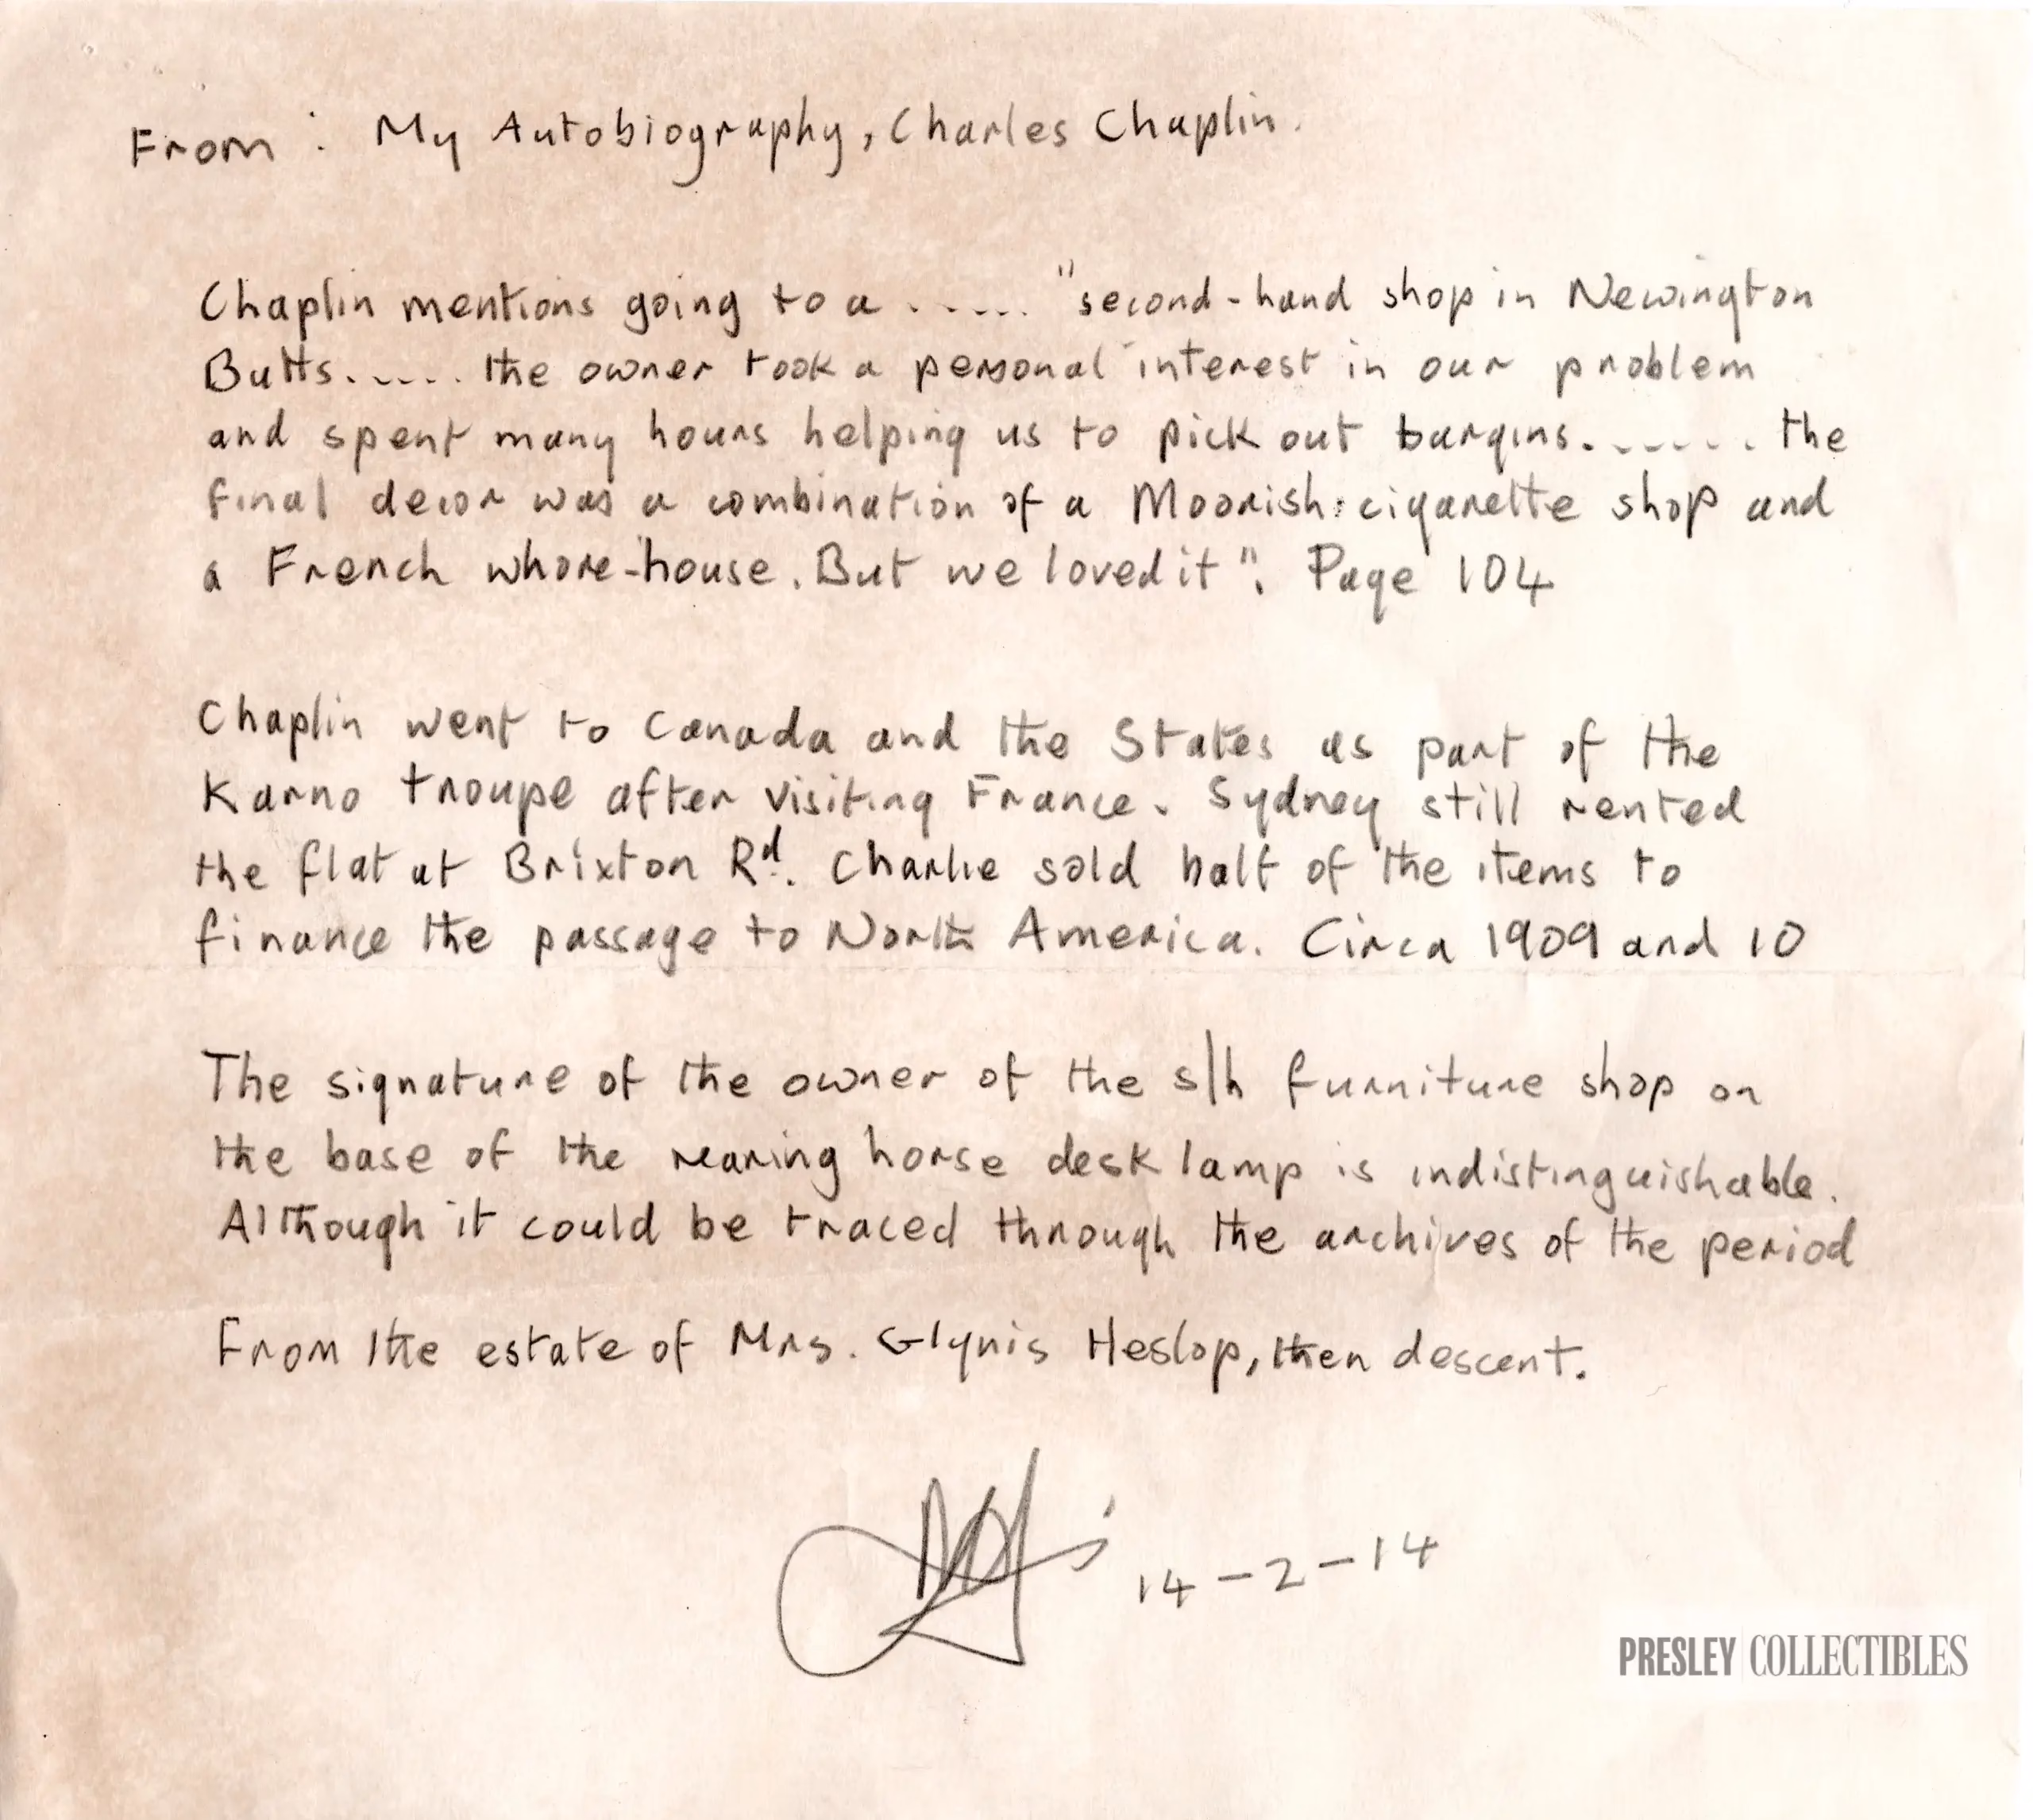 From : My Autobiography, Charles Chaplin.
Chaplin mentions going to a ..... "second-hand shop in Newington
Butts..... the owner took a personal interest in our problem
and spent many hours helping us to pick out bargins....... the
final decor was a combination of a Moorish cigarette shop and
a French whore-house. But we loved it". Page 104
Chaplin went to Canada and the States as part of the
Karno troupe after visiting France. Sydney still rented
the flat at Brixton Rd. Charlie sold half of the items to
finance the passage to North America. Circa 1909 and 10
The signature of the owner of the s/h furniture shop on
the base of the rearing horse desk lamp is indistinguishable.
Although it could be traced through the archives of the period
From the estate of Mrs. Glynis Heslop, then descent.
14-2-14
PRESLEY COLLECTIBLES